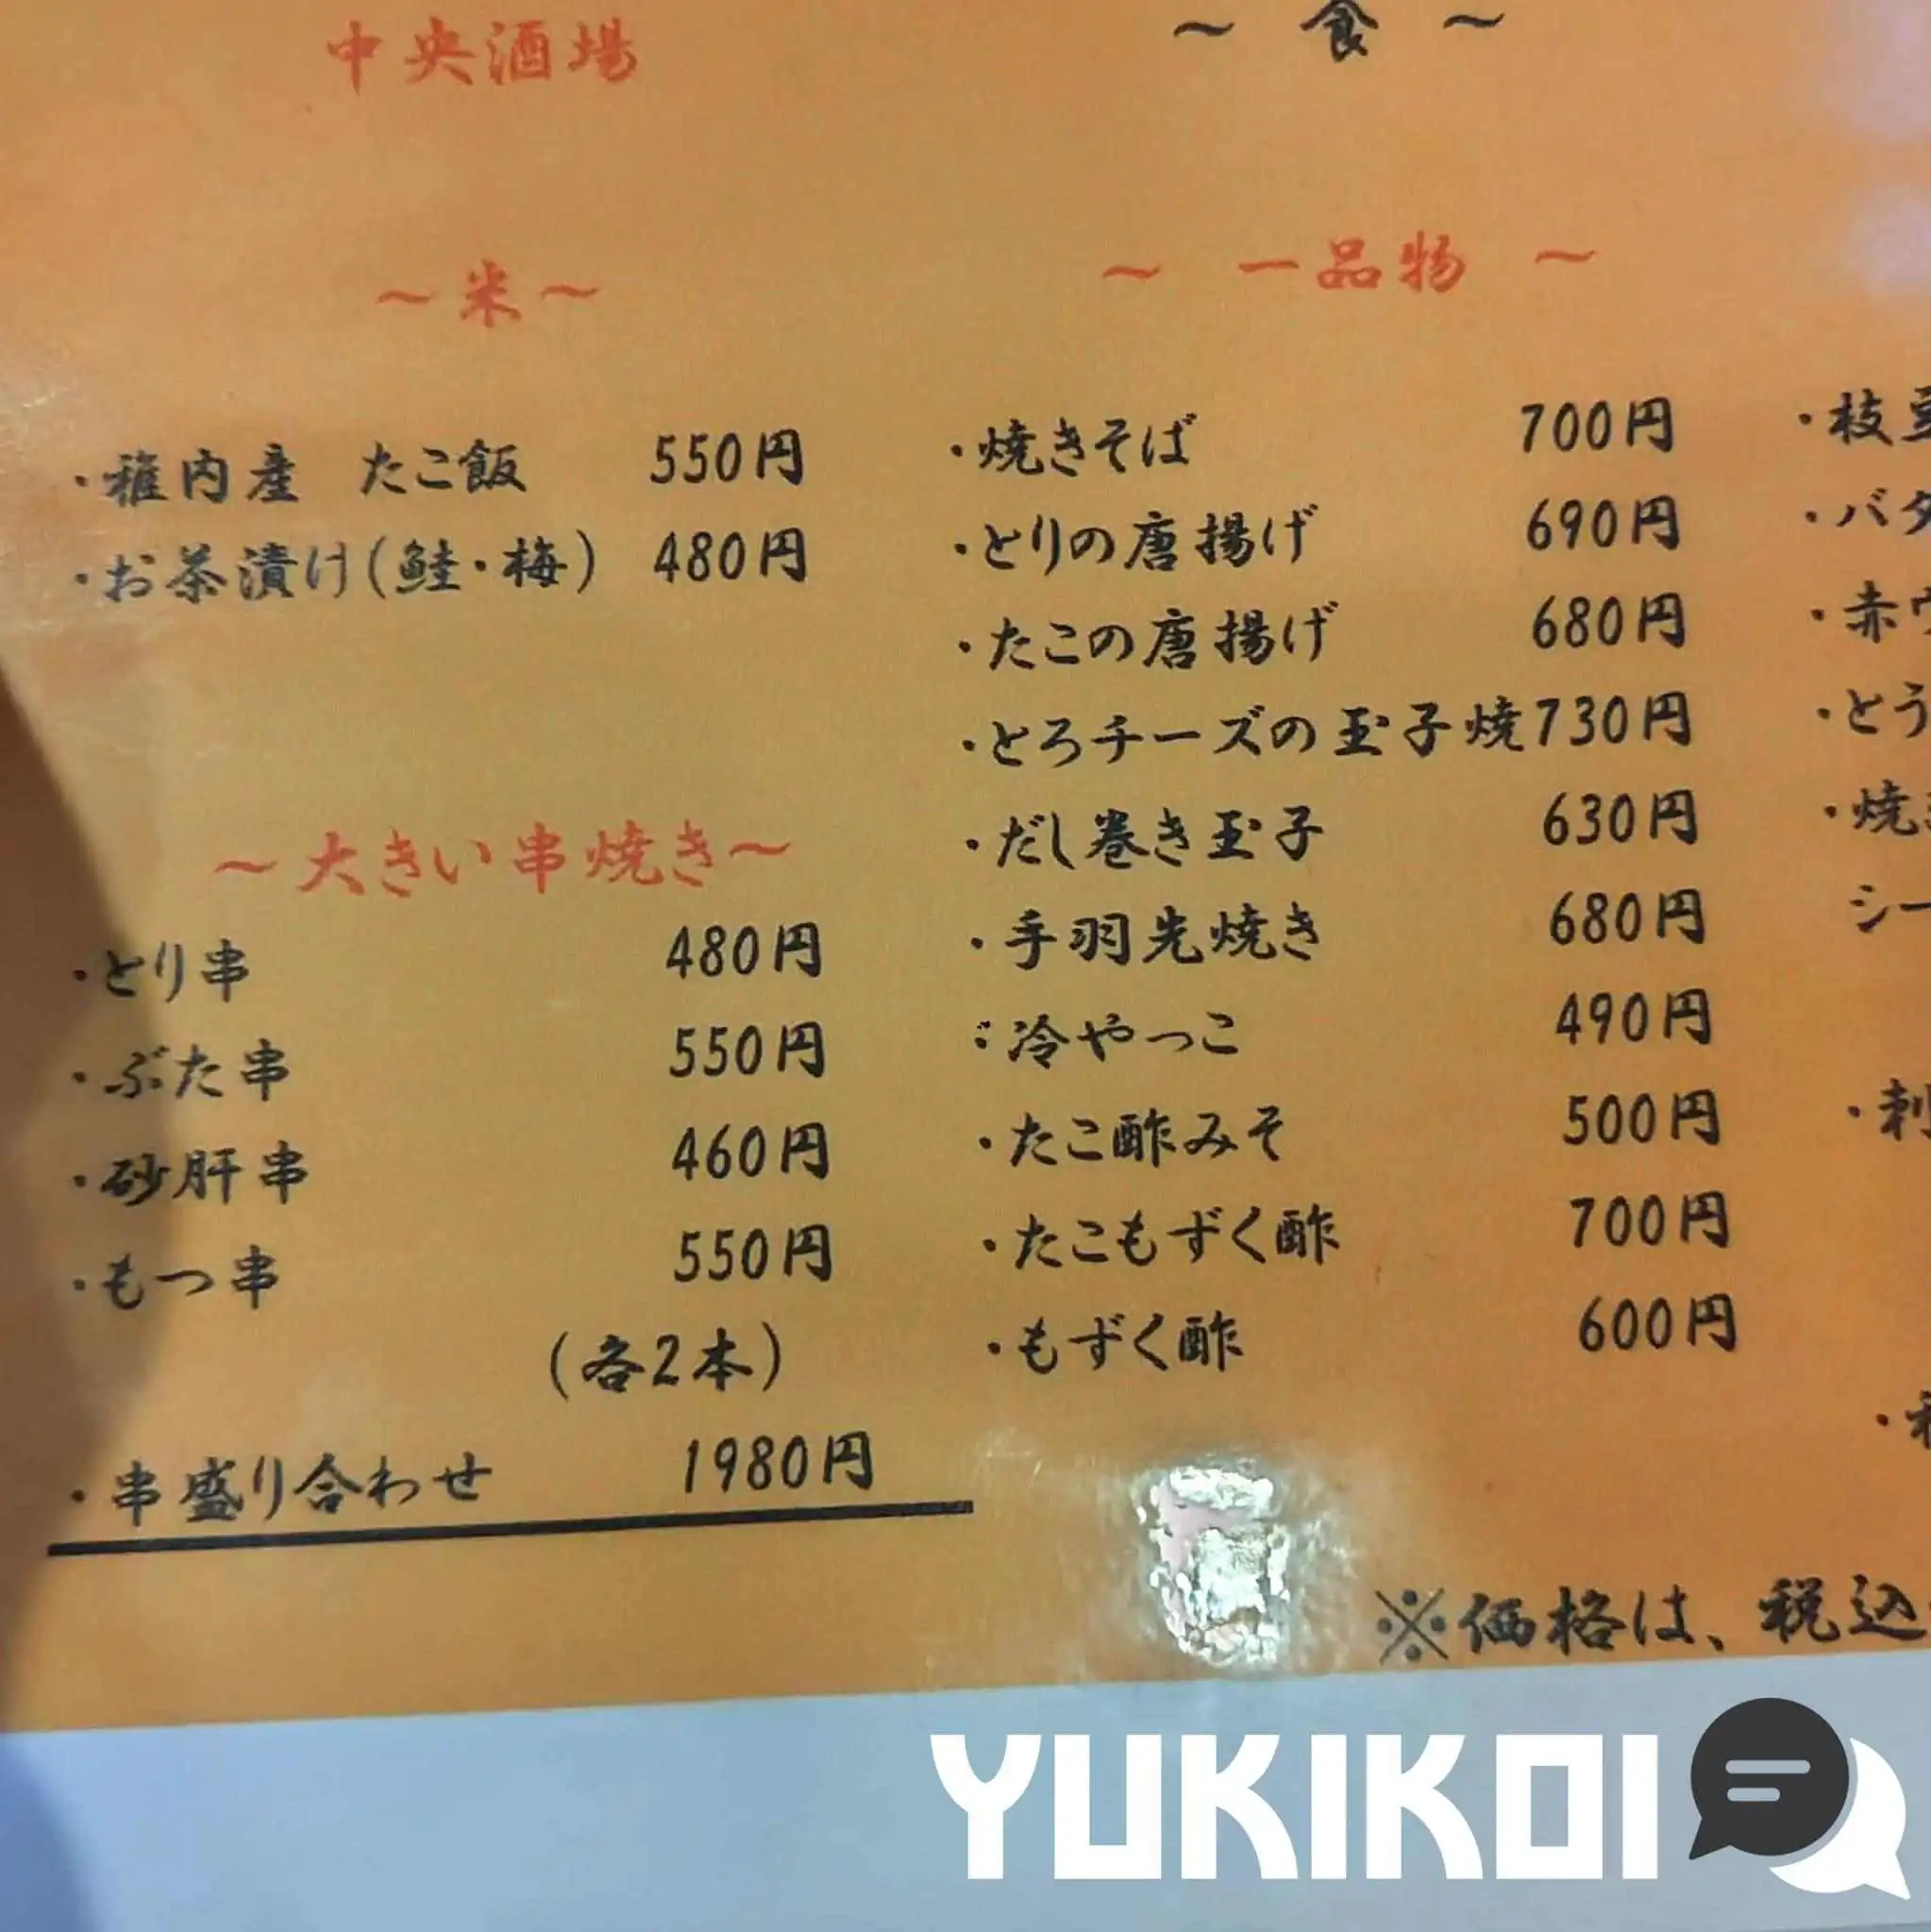 中央酒場
～ 食 ～
～米～
・稚内産 たこ飯 550円
・お茶漬け(鮭・梅) 480円
～大きい串焼き～
・とり串 480円
・ぶた串 550円
・砂肝串 460円
・もつ串 550円
(各2本)
・串盛り合わせ 1980円
～ 一品物 ～
・焼きそば 700円
・とりの唐揚げ 690円
・たこの唐揚げ 680円
・とろチーズの玉子焼 730円
・だし巻き玉子 630円
・手羽先焼き 680円
・冷やっこ 490円
・たこ酢みそ 500円
・たこもずく酢 700円
・もずく酢 600円
・枝豆
・バタ
・赤ウ
・とう
・焼
シー
・刺
※価格は、税込
YUKIKOI